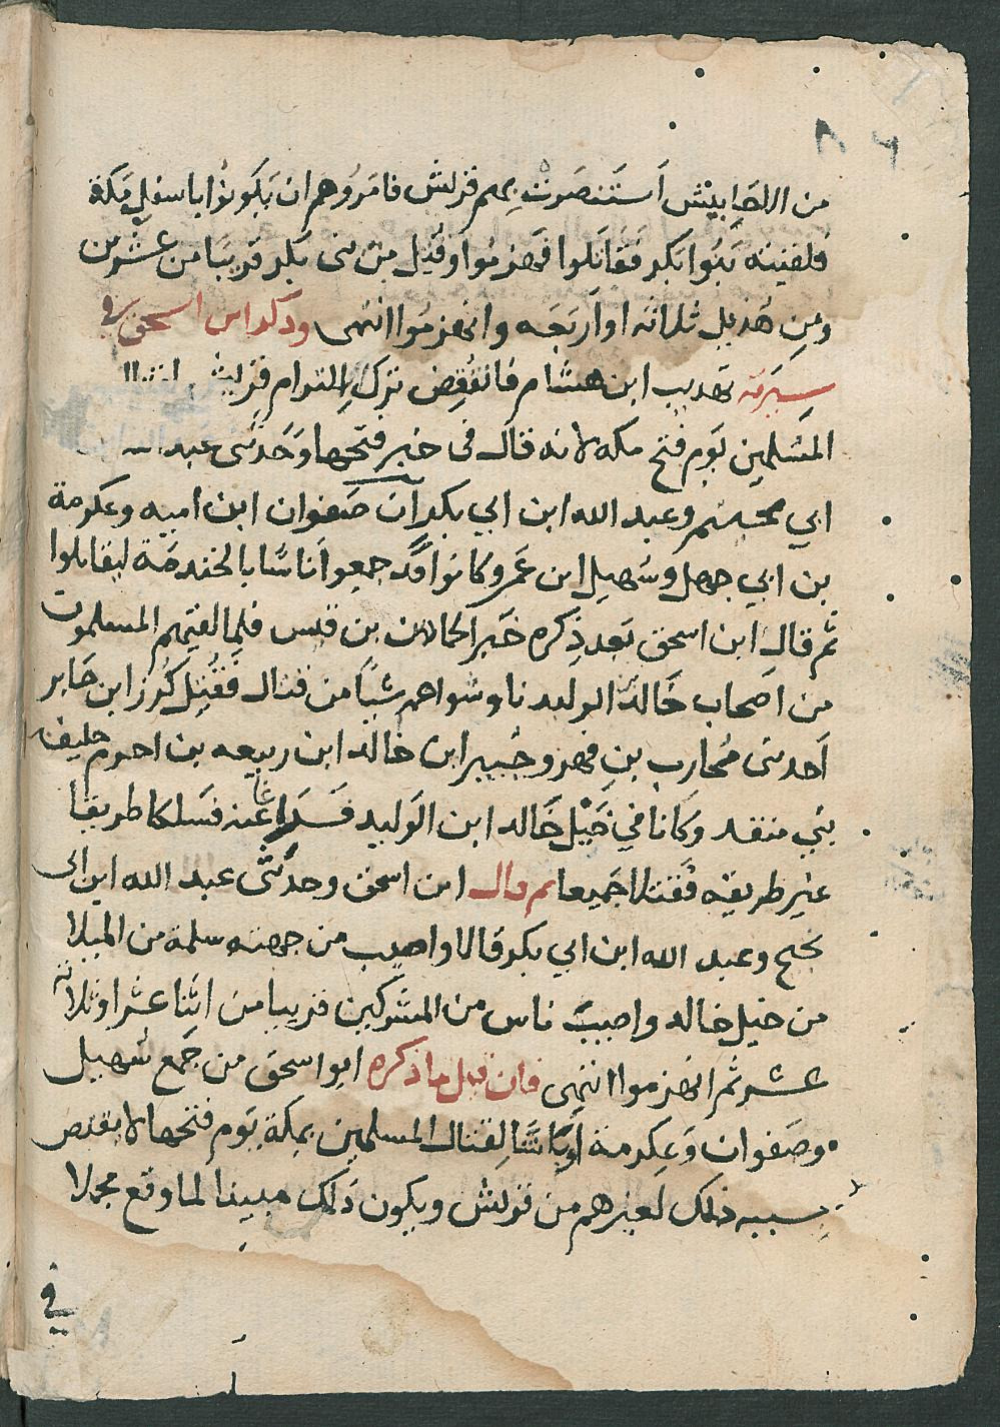 من الاحابيش استنصرت بهم قريش فامروهم ان يكونوا باسفل مكة
فلقيته بنوا بكر فقاتلوا فهزموا وقتل من بني بكر قريبا من عشرين
ومن هذيل ثلاثه او اربعه وانهزموا انتهى وذكر ابن اسحق في
سيرته تهذيب ابن هشام فانقض ترك التزام قريش
المسلمين يوم فتح مكه لانه قال في خبر فتحها وحدثني عبد
ابي نجيح وعبد الله ابن ابي بكر ان صفوان ابن اميه وعكرمة
بن ابي جهل وسهيل ابن عمرو كانوا قد جمعوا اناسا بالخندمة ليقاتلوا
ثم قال ابن اسحق بعد ذكره خبر الحماس بن قيس فلما لقيتهم المسلمون
من اصحاب خالد الوليد ناوشواهم شيا من قتال فقتل كرز ابن جابر
احد بني محارب بن فهر وحبيس ابن خالد ابن ربيعه بن اصرم حليف
بني منقد وكانا في خيل خالد ابن الوليد فشذا عنه فسلكا طريقا
غير طريقه فقتلا جميعا ثم قال ابن اسحق وحدثني عبد الله ابن ابي
نجيح وعبد الله ابن ابي بكر قالا واصيب من جهينه سلمة من الميلا
من خيل خالد واصيب ناس من المشركين قريبا من اثنا عشر او ثلاثه
عشر ثم انهزموا انتهى فان قيل ما ذكره ابو اسحق من جمع سهيل
وصفوان وعكرمة اوباشا لقتال المسلمين بمكة يوم فتحها لا يقتض
بسببه ذلك لغيرهم من قريش ويكون ذلك مبينا لما وقع مجملا
في